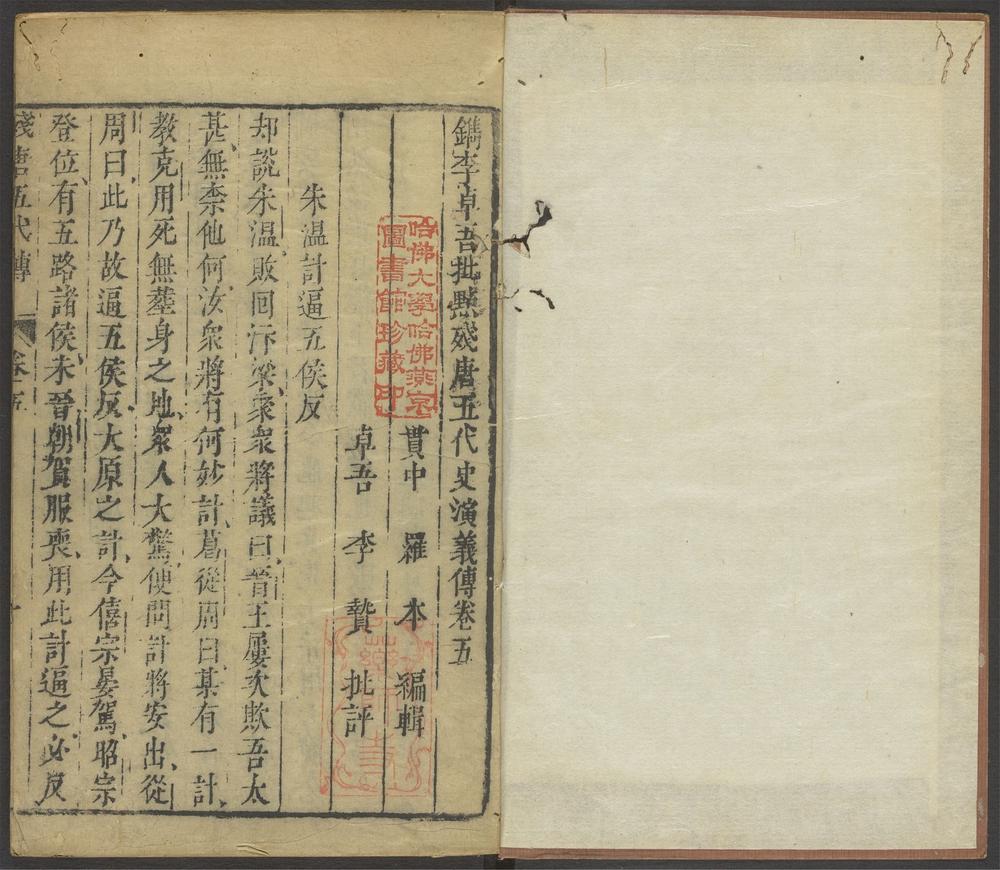 鐫李卓吾批㸃殘唐五代史演義傳卷五
貫中　羅　本　編輯
卓吾　李　贄　批評
朱溫計逼五侯反
却說朱溫敗回汴梁聚衆將議曰晋王屢次欺吾太
甚無柰他何汝衆將有何妙計葛從周曰某有一計
教克用死無塟身之地衆人大驚便問計將安出從
周曰此乃故逼五侯反太原之計今僖宗晏駕昭宗
登位有五路諸侯未晉朝賀服喪用此計逼之必反
殘唐五代傳　卷五
哈佛大學哈佛燕京
圖書館珍藏印